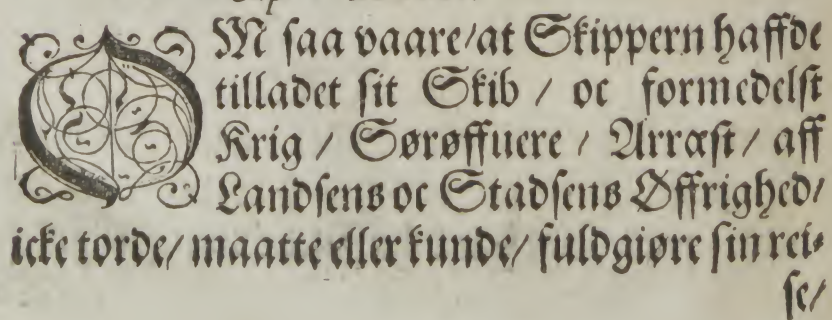 OM saa vaare/at Skippern haffde
tilladet sit Skib / oc formedelst
Krig / Sørøffuere / Arræst / aff
Landsens oc Stadsens Øffrighed/
icke torde/ maatte eller kunde/ fuldgiøre sin rei-
se/